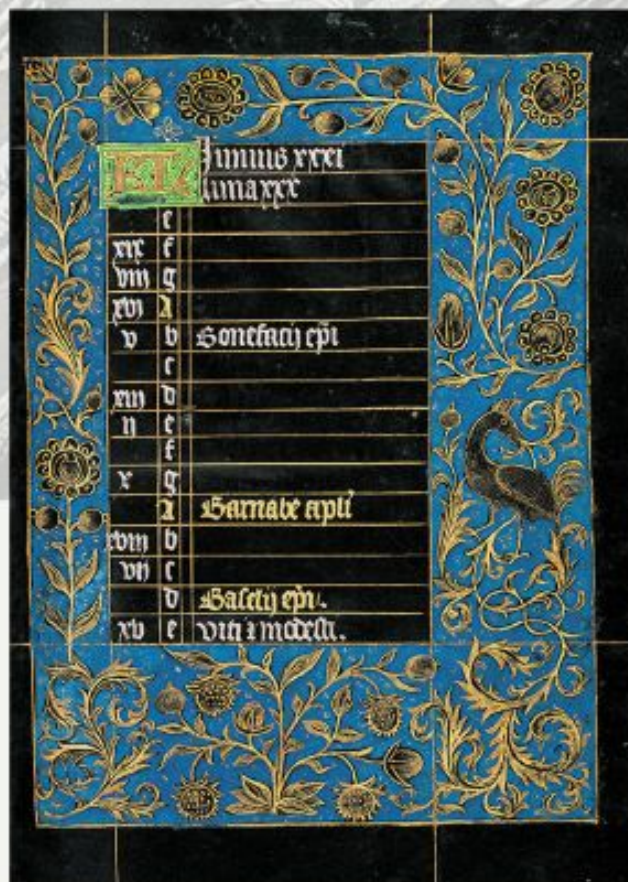 KL Junius xxxi
luna xxx
e
xix f
viii g
xvi A
v b Bonefacij ep̄i
c
xiii d
ii e
f
x g
A Barnabe apl̄i
xviii b
vii c
d Basilij ep̄i.
xv e viti ⁊ modesti.